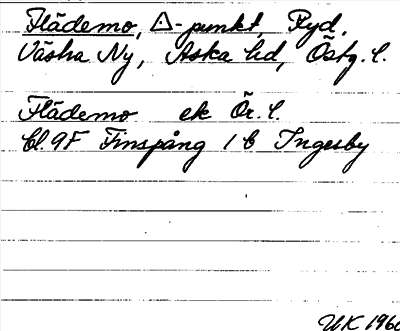 Flädemo, △-punkt, Ryd,
Västra Ny, Aska hd, Östg. l.
Flädemo ek Ör. l.
bl. 9F Finspång 1 b Ingesby
UK 1960